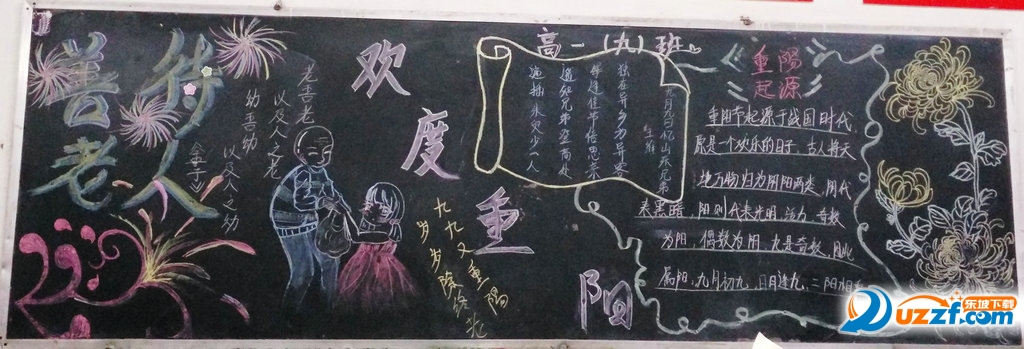 善待
老人
老善老
以及人之老
幼善幼
以及人之幼
《孟子》
欢度重阳
九九又重阳
岁岁
高一(九)班
九月九日忆山东兄弟
王维
独在异乡为异客
每逢佳节倍思亲
遥知兄弟登高处
遍插茱萸少一人
重阳
起源
重阳节起源于战国时代,
原是一个欢乐的日子. 古人将天
地万物归为阴阳两类, 阴代
表黑暗, 阳则代表光明, 活力, 奇数
为阳, 偶数为阴. 九是奇数, 因此
属阳, 九月初九, 日月逢九, 二阳相
东坡下载
uzzf.com